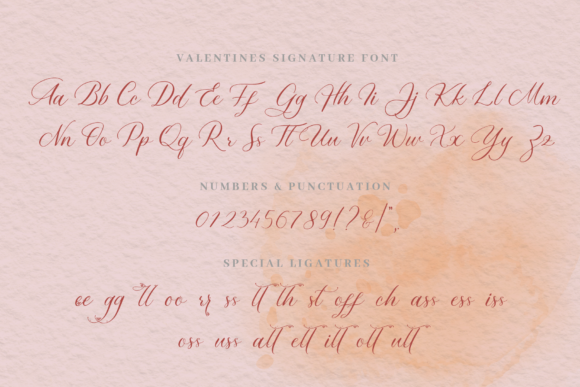 VALENTINES SIGNATURE FONT
Aa Bb Cc Dd Ee Ff Gg Hh Ii Jj Kk Ll Mm
Nn Oo Pp Qq Rr Ss Tt Uu Vv Ww Xx Yy Zz
NUMBERS & PUNCTUATION
0123456789!?&/
SPECIAL LIGATURES
oe gg oo rr ss tt th st off ch ass ess iss
oss uss att ett itt ott utt